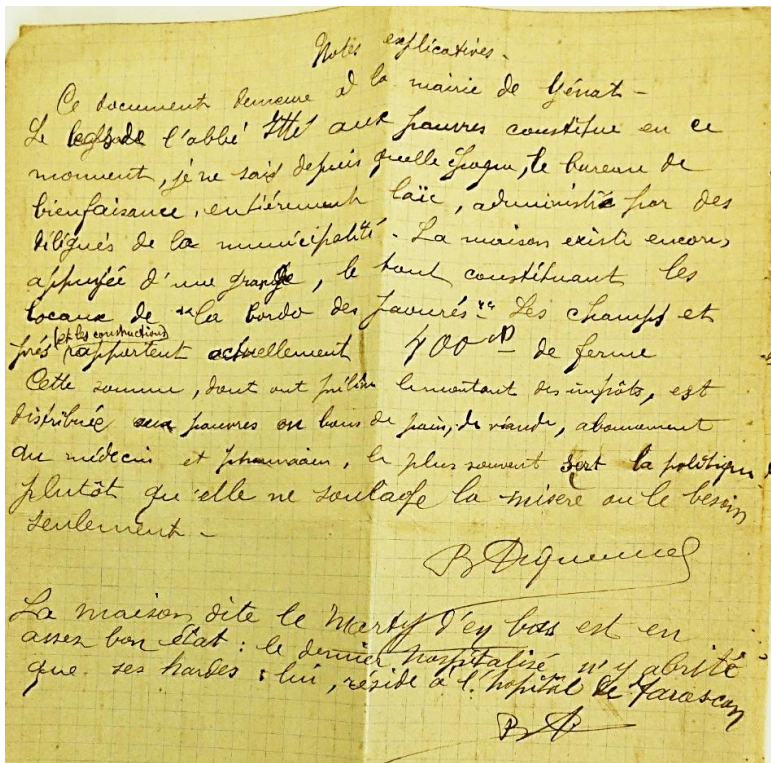 Notes explicatives.
Ce document demeure à la mairie de Génat -
Le legs de l'abbé aux pauvres constitue en ce
moment, je ne sais depuis quelle époque, le bureau de
bienfaisance, entièrement laïc, administré par des
délégués de la municipalité. La maison existe encore,
appuyée d'une grange, le tout constituant les
locaux de "la bordo des paourés" Les champs et
prés (et les constructions) rapportent actuellement 400 de ferme
Cette somme, dont ont le montant des impôts, est
distribuée aux pauvres en bons de pain, de viande, abonnement
du médecin et pharmacien, le plus souvent sert la politique
plutôt qu'elle ne soulage la misère ou le besoin
seulement -
La maison dite le Marty d'en bas est en
assez bon état : le dernier hospitalisé n'y abrite
que ses hardes : lui, réside à l'hôpital de Tarascon